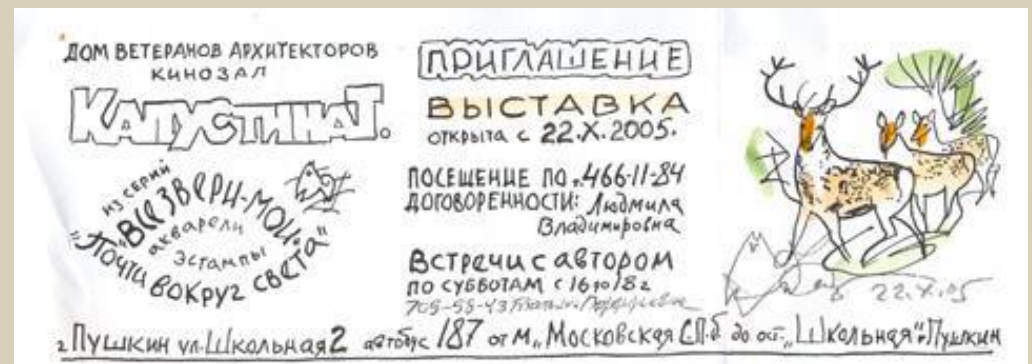 ДОМ ВЕТЕРАНОВ АРХИТЕКТОРОВ
КИНОЗАЛ
КАПУСТИНАТ.
ИЗ СЕРИЙ
"ВСЕ ЗВЕРИ-МОИ"
акварели
Эстампы
"Почти вокруг света"
ПРИГЛАШЕНИЕ
ВЫСТАВКА
открыта с 22.X.2005.
ПОСЕЩЕНИЕ ПО т.466-11-84
ДОГОВОРЕННОСТИ: Людмила
Владимировна
Встречи с автором
по субботам с 16 до 18 г
709-55-43
22.X.05
г Пушкин ул. Школьная 2 автобус 187 от м„Московская С.П.б до ост. „Школьная" г. Пушкин